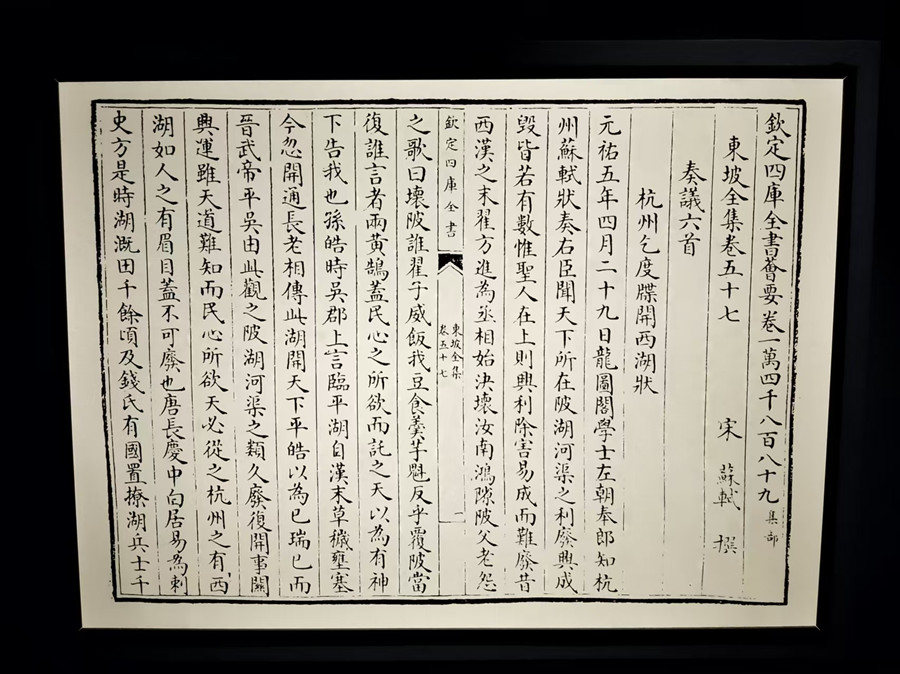 欽定四庫全書薈要卷一萬四千八百八十九 集部
東坡全集卷五十七 宋 蘇軾 撰
奏議六首
杭州乞度牒開西湖狀
元祐五年四月二十九日龍圖閣學士左朝奉郎知杭
州蘇軾狀奏右臣聞天下所在陂湖河渠之利廢興成
毀皆若有數惟聖人在上則興利除害易成而難廢昔
西漢之末翟方進為丞相始決壞汝南鴻隙陂父老怨
欽定四庫全書
東坡全集
卷五十七
一
之歌曰壞陂誰翟子威飯我豆食羹芋魁反乎覆陂當
復誰言者兩黃鵠蓋民心之所欲而託之天以為有神
下告我也孫皓時吳郡上言臨平湖自漢末草穢壅塞
今忽開通長老相傳此湖開天下平皓以為已瑞已而
晉武帝平吳由此觀之陂湖河渠之類久廢復開事關
興運雖天道難知而民心所欲天必從之杭州之有西
湖如人之有眉目蓋不可廢也唐長慶中白居易為刺
史方是時湖溉田千餘頃及錢氏有國置撩湖兵士千